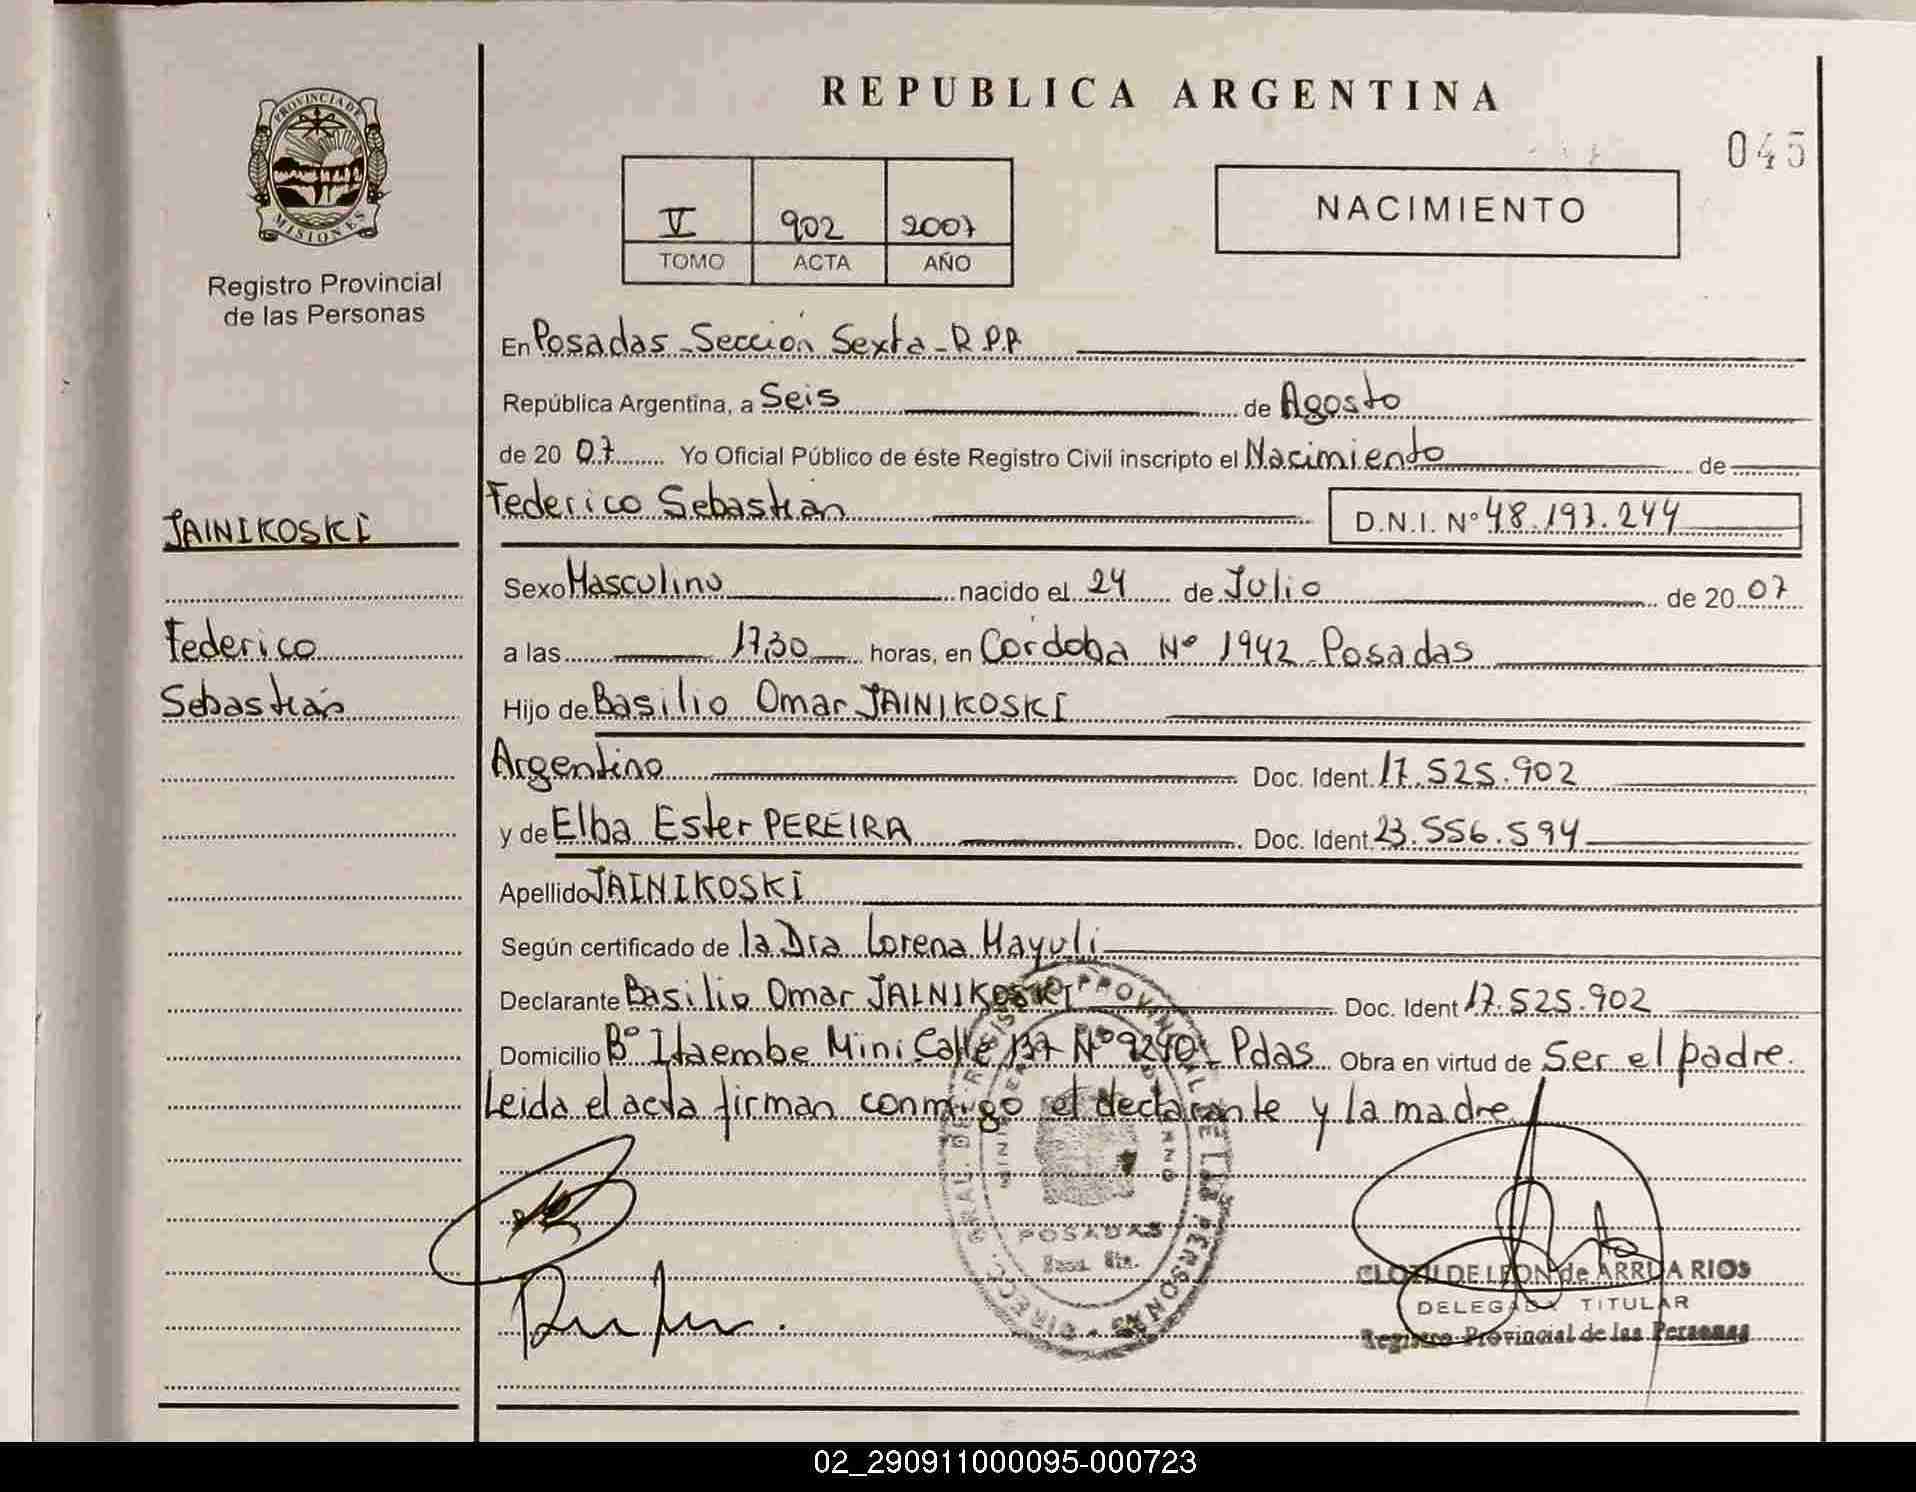 REPUBLICA ARGENTINA
045
PROVINCIA DE
MISIONES
Registro Provincial
de las Personas
V 902 2007
TOMO ACTA AÑO
NACIMIENTO
En Posadas - Sección Sexta - R.P.P.
República Argentina, a Seis de Agosto
de 20 07 Yo Oficial Público de éste Registro Civil inscripto el Nacimiento de
Federico Sebastián D.N.I. Nº 48.197.244
JAINIKOSKI
Federico
Sebastián
Sexo Masculino nacido el 24 de Julio de 20 07
a las 17,30 horas, en Córdoba Nº 1942 - Posadas
Hijo de Basilio Omar JAINIKOSKI
Argentino Doc. Ident. 17.525.902
y de Elba Ester PEREIRA Doc. Ident. 23.556.594
Apellido JAINIKOSKI
Según certificado de la Dra Lorena Mayuli
Declarante Basilio Omar JAINIKOSKI Doc. Ident 17.525.902
Domicilio Bº Itaembe Mini Calle 137 Nº 9240 - Pdas. Obra en virtud de Ser el padre.
Leida el acta firman conmigo el declarante y la madre.
POSADAS
CLOTILDE LEON de ARRUA RIOS
DELEGADA TITULAR
Registro Provincial de las Personas
02_290911000095-000723